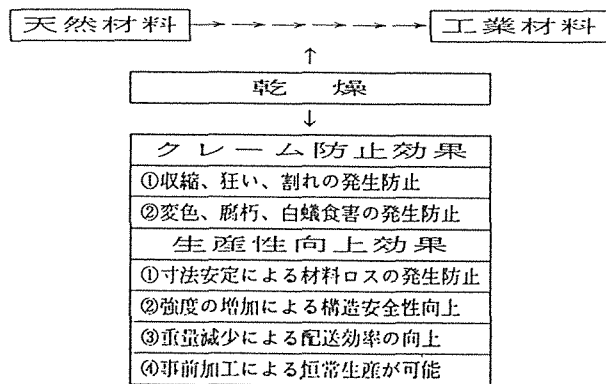 天然材料 工業材料
乾燥
クレーム防止効果
①収縮、狂い、割れの発生防止
②変色、腐朽、白蟻食害の発生防止
生産性向上効果
①寸法安定による材料ロスの発生防止
②強度の増加による構造安全性向上
③重量減少による配送効率の向上
④事前加工による恒常生産が可能